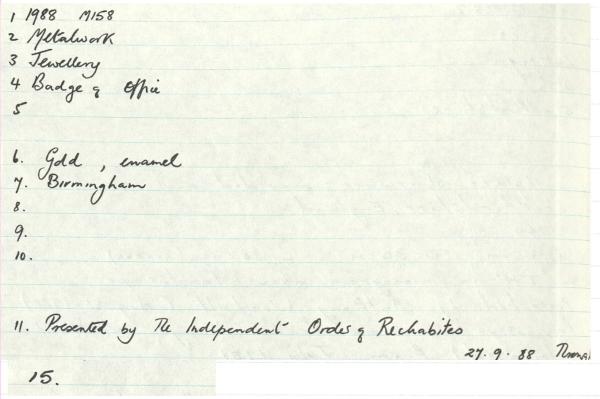 1 1988 M158
2 Metalwork
3 Jewellery
4 Badge of Office
5
6. Gold, enamel
7. Birmingham
8.
9.
10.
11. Presented by The Independent Order of Rechabites
27.9.88
15.